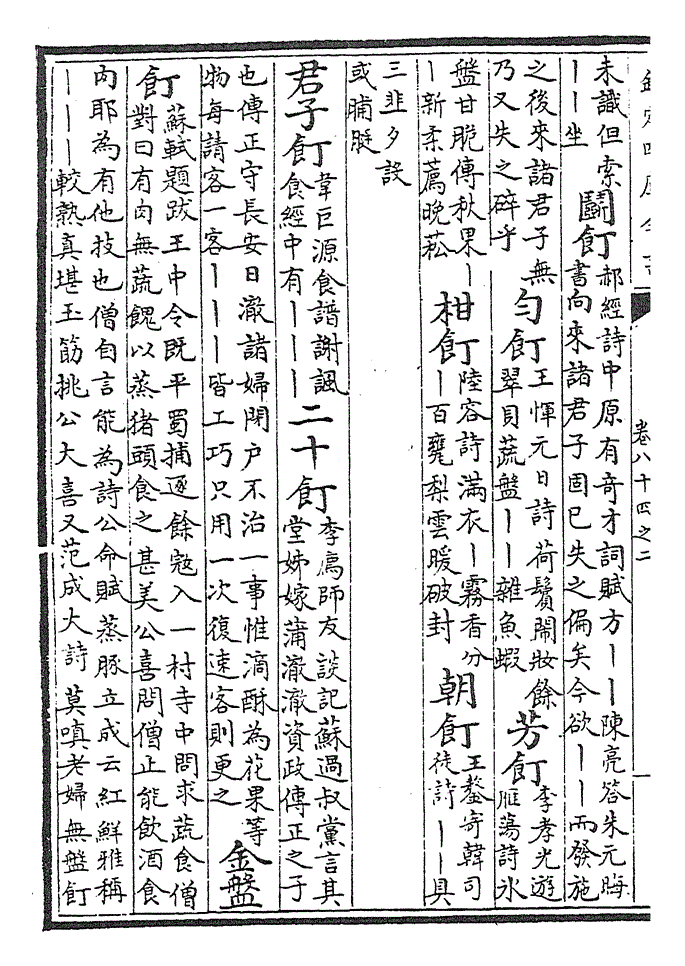 卷八十四之二
一
未識但索
——坐
鬬飣
郝經詩中原有奇才詞賦方——陳亮答朱元晦
書向來諸君子固已失之偏矣今欲——而發施
之後來諸君子無
乃又失之碎乎
勻飣
王惲元日詩荷鬢鬧妝餘
翠貝蔬盤——雜魚蝦
芳飣
李孝光遊
雁蕩詩氷
盤甘脆傳秋果—
—新柔薦晚菘
柑飣
陸容詩滿衣—霧香分
—百甕梨雲暖破封
朝飣
王鏊寄韓司
徒詩——具
三韭夕設
或脯脠
君子飣
韋巨源食譜謝諷
食經中有———
二十飣
李廌師友談記蘇過叔黨言其
堂姊嫁蒲澈澈資政傳正之子
也傳正守長安日澈諸婦閉户不治一事惟滴酥為花果等
物每請客一客———皆工巧只用一次復速客則更之
金盤
飣
蘇軾題跋王中令既平蜀捕逐餘寇入一村寺中問求蔬食僧
對曰有肉無蔬餽以蒸猪頭食之甚美公喜問僧止能飲酒食
肉耶為有他技也僧自言能為詩公命賦蒸豚立成云紅鮮雅稱
———較熟真堪玉筯挑公大喜又范成大詩莫嗔老婦無盤飣